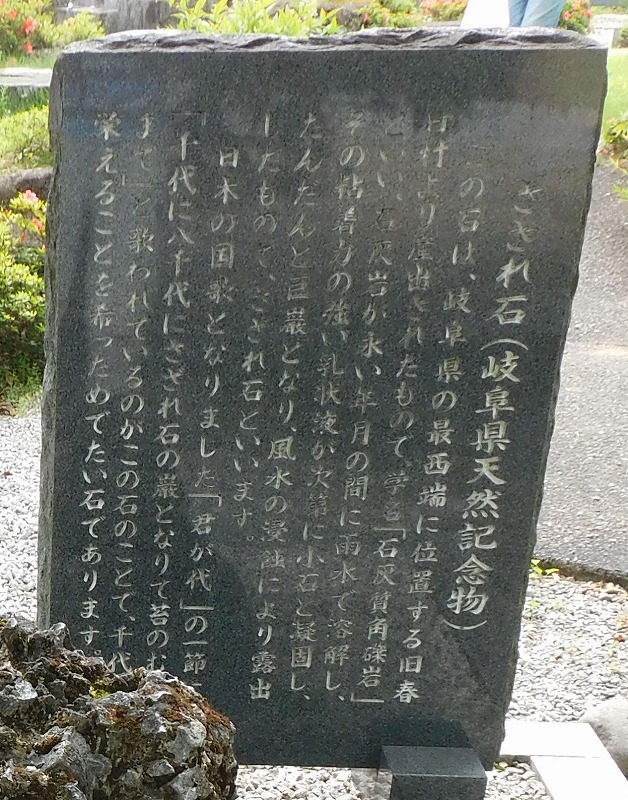 さざれ石(岐阜県天然記念物)
の石は、岐阜県の最西端に位置する旧春
日村より産出されたもので、学名「石灰質角礫岩」
といい、石灰岩が永い年月の間に雨水で溶解し、
その粘着力の強い乳状液が次第に小石を凝固し、
だんだんと巨巌となり、風水の浸蝕により露出
したもので、さざれ石といいます。
日本の国歌となりました「君が代」の一節
「千代に八千代にさざれ石の巌となりて苔のむ
すまで」と歌われているのがこの石のことで、千代
栄えることを希つためでたい石であります。